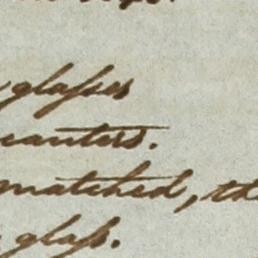 glaſses
canters.
matched, th
glaſs.